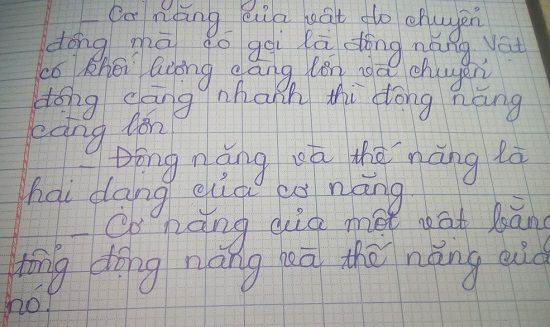 - Cơ năng của vật do chuyển
động mà có gọi là động năng Vật
có khối lượng càng lớn và chuyển
động càng nhanh thì động năng
càng lớn
- Động năng và thế năng là
hai dạng của cơ năng.
- Cơ năng của một vật bằng
tổng động năng và thế năng của
nó.